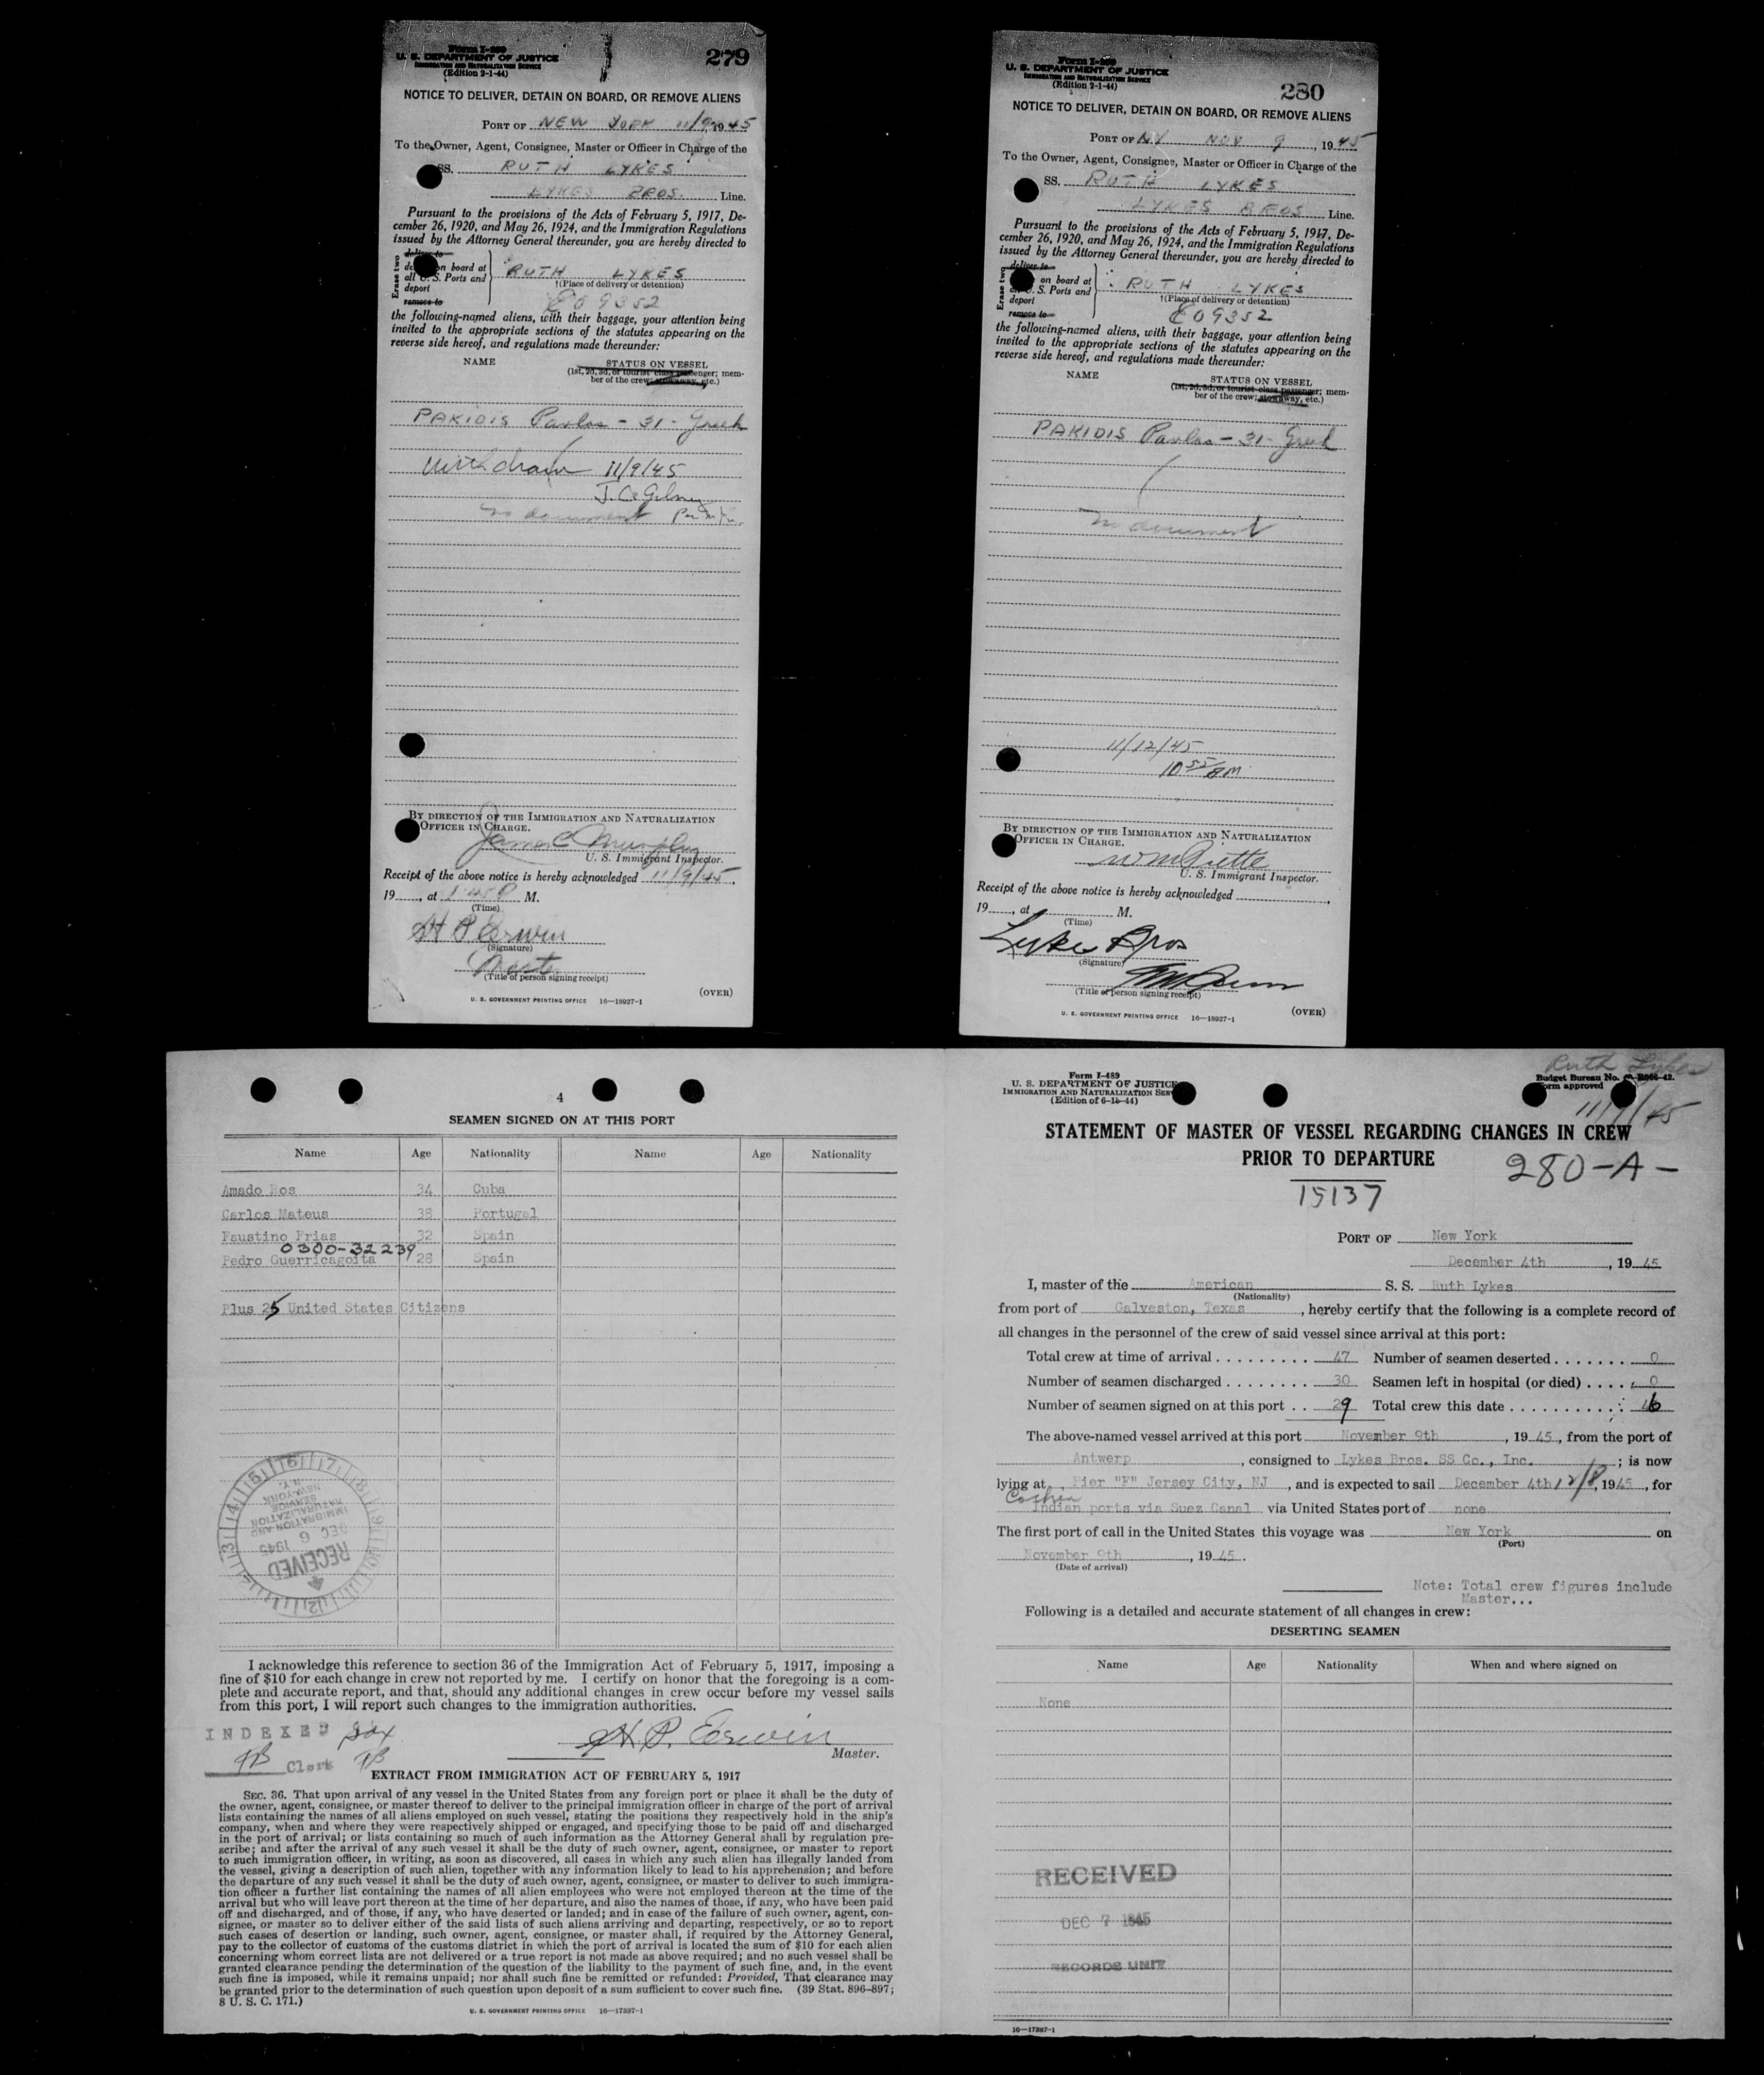 Form I-259
U. S. DEPARTMENT OF JUSTICE
IMMIGRATION AND NATURALIZATION SERVICE
(Edition 2-1-44)
279
NOTICE TO DELIVER, DETAIN ON BOARD, OR REMOVE ALIENS
PORT OF NEW YORK 11/9, 1945
To the Owner, Agent, Consignee, Master or Officer in Charge of the
SS. RUTH LYKES
LYKES BROS. Line.
Pursuant to the provisions of the Acts of February 5, 1917, De-
cember 26, 1920, and May 26, 1924, and the Immigration Regulations
issued by the Attorney General thereunder, you are hereby directed to
Erase two
deliver to
on board at
all U. S. Ports and
deport
remove to
RUTH LYKES
†(Place of delivery or detention)
E09352
the following-named aliens, with their baggage, your attention being
invited to the appropriate sections of the statutes appearing on the
reverse side hereof, and regulations made thereunder:
NAME
STATUS ON VESSEL
(1st, 2d, 3d, or tourist class passenger; mem-
ber of the crew; stowaway, etc.)
PAKIDIS Pavlos - 31 - Greek
Withdrawn 11/9/45
no document
BY DIRECTION OF THE IMMIGRATION AND NATURALIZATION
OFFICER IN CHARGE.
James C Murphy
U. S. Immigrant Inspector.
Receipt of the above notice is hereby acknowledged 11/9/45,
19, at 1:45 P M.
(Time)
H P Erwin
(Signature)
(Title of person signing receipt)
U. S. GOVERNMENT PRINTING OFFICE 16—18927-1
(OVER)
Form I-259
U. S. DEPARTMENT OF JUSTICE
IMMIGRATION AND NATURALIZATION SERVICE
(Edition 2-1-44)
280
NOTICE TO DELIVER, DETAIN ON BOARD, OR REMOVE ALIENS
PORT OF NY NOV 9, 1945
To the Owner, Agent, Consignee, Master or Officer in Charge of the
SS. RUTH LYKES
LYKES BROS Line.
Pursuant to the provisions of the Acts of February 5, 1917, De-
cember 26, 1920, and May 26, 1924, and the Immigration Regulations
issued by the Attorney General thereunder, you are hereby directed to
Erase two
deliver to
on board at
U. S. Ports and
deport
remove to
RUTH LYKES
†(Place of delivery or detention)
E09352
the following-named aliens, with their baggage, your attention being
invited to the appropriate sections of the statutes appearing on the
reverse side hereof, and regulations made thereunder:
NAME
STATUS ON VESSEL
(1st, 2d, 3d, or tourist class passenger; mem-
ber of the crew; stowaway, etc.)
PAKIDIS Pavlos - 31 - Greek
no document
11/12/45
10 55 AM
BY DIRECTION OF THE IMMIGRATION AND NATURALIZATION
OFFICER IN CHARGE.
U. S. Immigrant Inspector.
Receipt of the above notice is hereby acknowledged
19, at M.
(Time)
Lykes Bros
(Signature)
(Title of person signing receipt)
U. S. GOVERNMENT PRINTING OFFICE 16—18927-1
(OVER)
4
SEAMEN SIGNED ON AT THIS PORT
Name Age Nationality Name Age Nationality
Amado Ros 34 Cuba
Carlos Mateus 38 Portugal
Faustino Frias 32 Spain
0300-32239
Pedro Guerricagoita 28 Spain
Plus 25 United States Citizens
IMMIGRATION AND
NATURALIZATION
SERVICE
NEW-YORK
N.Y.
DEC 6 1945
RECEIVED
I acknowledge this reference to section 36 of the Immigration Act of February 5, 1917, imposing a
fine of $10 for each change in crew not reported by me. I certify on honor that the foregoing is a com-
plete and accurate report, and that, should any additional changes in crew occur before my vessel sails
from this port, I will report such changes to the immigration authorities.
INDEXED
Clerk
H. P. Erwin
Master.
EXTRACT FROM IMMIGRATION ACT OF FEBRUARY 5, 1917
SEC. 36. That upon arrival of any vessel in the United States from any foreign port or place it shall be the duty of
the owner, agent, consignee, or master thereof to deliver to the principal immigration officer in charge of the port of arrival
lists containing the names of all aliens employed on such vessel, stating the positions they respectively hold in the ship's
company, when and where they were respectively shipped or engaged, and specifying those to be paid off and discharged
in the port of arrival; or lists containing so much of such information as the Attorney General shall by regulation pre-
scribe; and after the arrival of any such vessel it shall be the duty of such owner, agent, consignee, or master to report
to such immigration officer, in writing, as soon as discovered, all cases in which any such alien has illegally landed from
the vessel, giving a description of such alien, together with any information likely to lead to his apprehension; and before
the departure of any such vessel it shall be the duty of such owner, agent, consignee, or master to deliver to such immigra-
tion officer a further list containing the names of all alien employees who were not employed thereon at the time of the
arrival but who will leave port thereon at the time of her departure, and also the names of those, if any, who have been paid
off and discharged, and of those, if any, who have deserted or landed; and in case of the failure of such owner, agent, con-
signee, or master so to deliver either of the said lists of such aliens arriving and departing, respectively, or so to report
such cases of desertion or landing, such owner, agent, consignee, or master shall, if required by the Attorney General,
pay to the collector of customs of the customs district in which the port of arrival is located the sum of $10 for each alien
concerning whom correct lists are not delivered or a true report is not made as above required; and no such vessel shall be
granted clearance pending the determination of the question of the liability to the payment of such fine, and, in the event
such fine is imposed, while it remains unpaid; nor shall such fine be remitted or refunded: Provided, That clearance may
be granted prior to the determination of such question upon deposit of a sum sufficient to cover such fine. (39 Stat. 896-897;
8 U. S. C. 171.)
U. S. GOVERNMENT PRINTING OFFICE 16—17387-1
Form I-489
U. S. DEPARTMENT OF JUSTICE
IMMIGRATION AND NATURALIZATION SERV
(Edition of 6-15-44)
Ruth Lykes
Budget Bureau No. 43-R066-42.
Form approved
11/9/45
STATEMENT OF MASTER OF VESSEL REGARDING CHANGES IN CREW
PRIOR TO DEPARTURE
280-A-
15137
PORT OF New York
December 4th, 1945
I, master of the American S. S. Ruth Lykes
(Nationality)
from port of Galveston, Texas, hereby certify that the following is a complete record of
all changes in the personnel of the crew of said vessel since arrival at this port:
Total crew at time of arrival . . . . . . . . . . 47 Number of seamen deserted . . . . . . . 0
Number of seamen discharged . . . . . . . . 30 Seamen left in hospital (or died) . . . . . 0
Number of seamen signed on at this port . . 29 Total crew this date . . . . . . . . . . . 46
The above-named vessel arrived at this port November 9th, 1945, from the port of
Antwerp, consigned to Lykes Bros. SS Co., Inc.; is now
lying at Pier "F" Jersey City, NJ, and is expected to sail December 4th 12/8, 1945, for
Indian ports via Suez Canal via United States port of none
The first port of call in the United States this voyage was New York on
(Port)
November 9th, 1945.
(Date of arrival)
Note: Total crew figures include
Master...
Following is a detailed and accurate statement of all changes in crew:
DESERTING SEAMEN
Name Age Nationality When and where signed on
None
RECEIVED
DEC 7 1945
RECORDS UNIT
16—17387-1